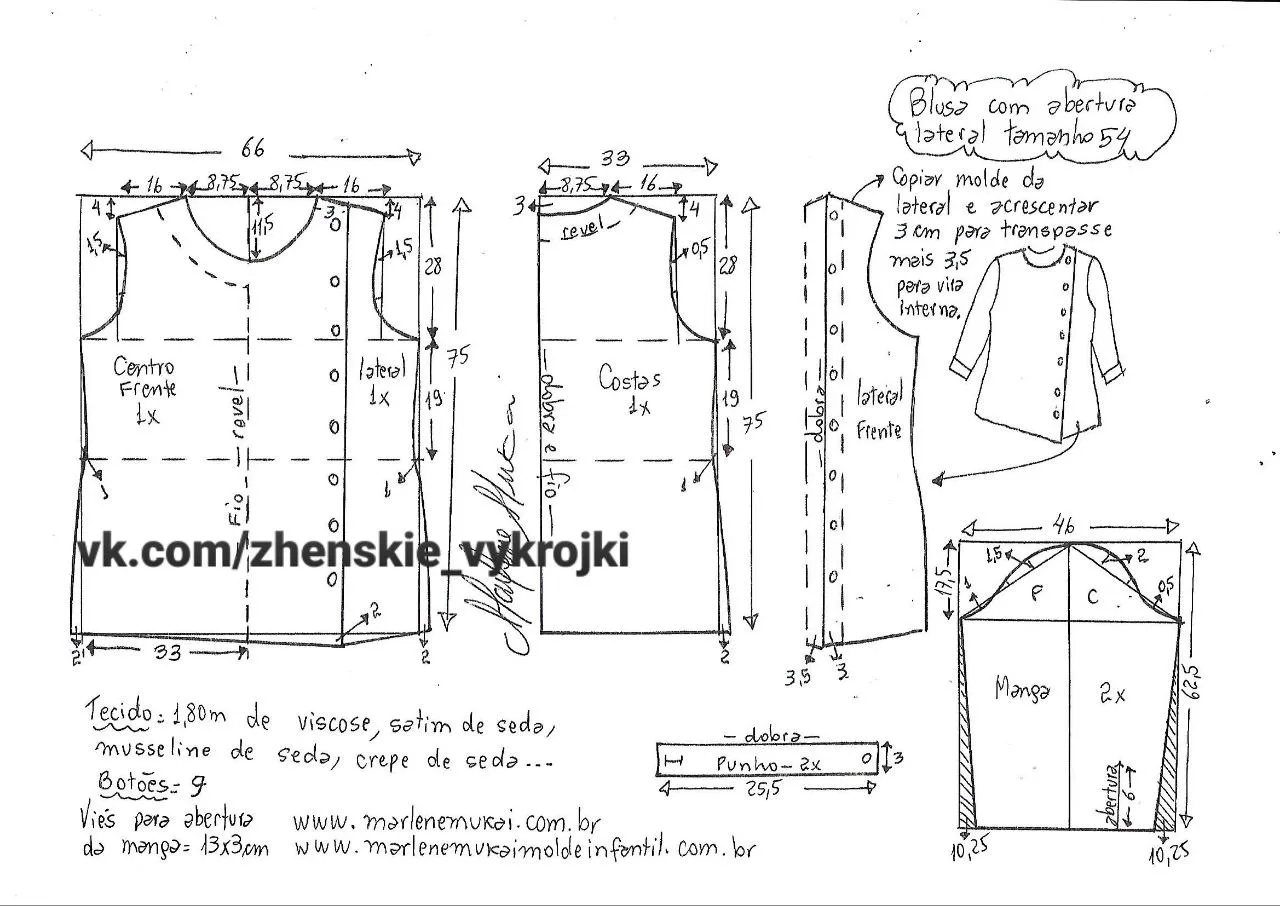 Blusa com abertura
lateral tamanho 54
66
16
8,75
8,75
16
4
3
4
11,5
1,5
1,5
28
Centro
Frente
1x
lateral
1x
19
75
Fio — revel —
1
1
2
2
33
2
33
8,75
16
3
revel
4
0,5
28
Costas
1x
19
75
fio e dobra
1
2
Copiar molde da
lateral e acrescentar
3 cm para transpasse
mais 3,5
para vira
interna.
— dobra —
lateral
Frente
3,5
3
46
17,5
1,5
2
1
0,5
P
C
Manga
2x
62,5
abertura
6
10,25
10,25
— dobra —
Punho – 2x
3
25,5
vk.com/zhenskie_vykrojki
Tecido = 1,80m de viscose, satim de seda,
musseline de seda, crepe de seda ...
Botões = 9
Viés para abertura
da manga = 13x3cm
www.marlenemukai.com.br
www.marlenemukaimoldeinfantil.com.br